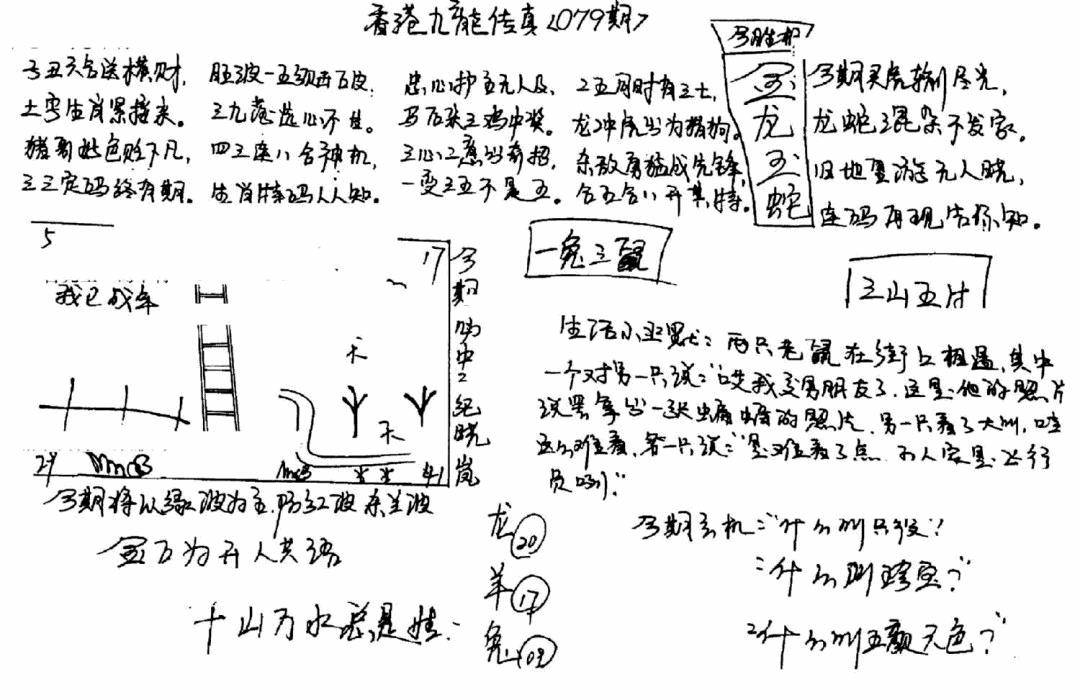 香港九龙传真<079期>
今胜机
子丑六合送横财，
土字生肖紧接来。
猪狗 色 下凡，
三三定码终有期。
波一五 西 波，
三九 心不 。
四三连八合神机，
生肖特码人人知。
忠心护主无人及，
马后杂三鸡中奖。
三心二意出奇招，
一变三五不是五。
二五同时有三七，
龙冲虎出为猪狗。
杀敌勇猛成先锋
合五合八开某特。
金
龙
玉
蛇
今期买虎输尽光，
龙蛇混杂不发家。
旧地重游无人晓，
连码再现告你知。
5
17
我已成年
禾
天
29
41
今期 中：纪晓岚
一兔三鼠
三山五片
生活小幽默：两只老鼠在街上相遇，其中
一个对另一只说：“哎我交男朋友了，这是他的照片
说罢拿出一张蝙蝠的照片，另一只看了大叫，哇
这么难看，第一只说：“是难看了点，不人家是飞行
员啊！”
今期将以绿波为主，防红波杂兰波
金 为开人英语
十山万水总是情：
龙 20
羊 17
兔 09
今期玄机：“什么叫只 ？
：什么叫 ？”
：什么叫五颜六色？”